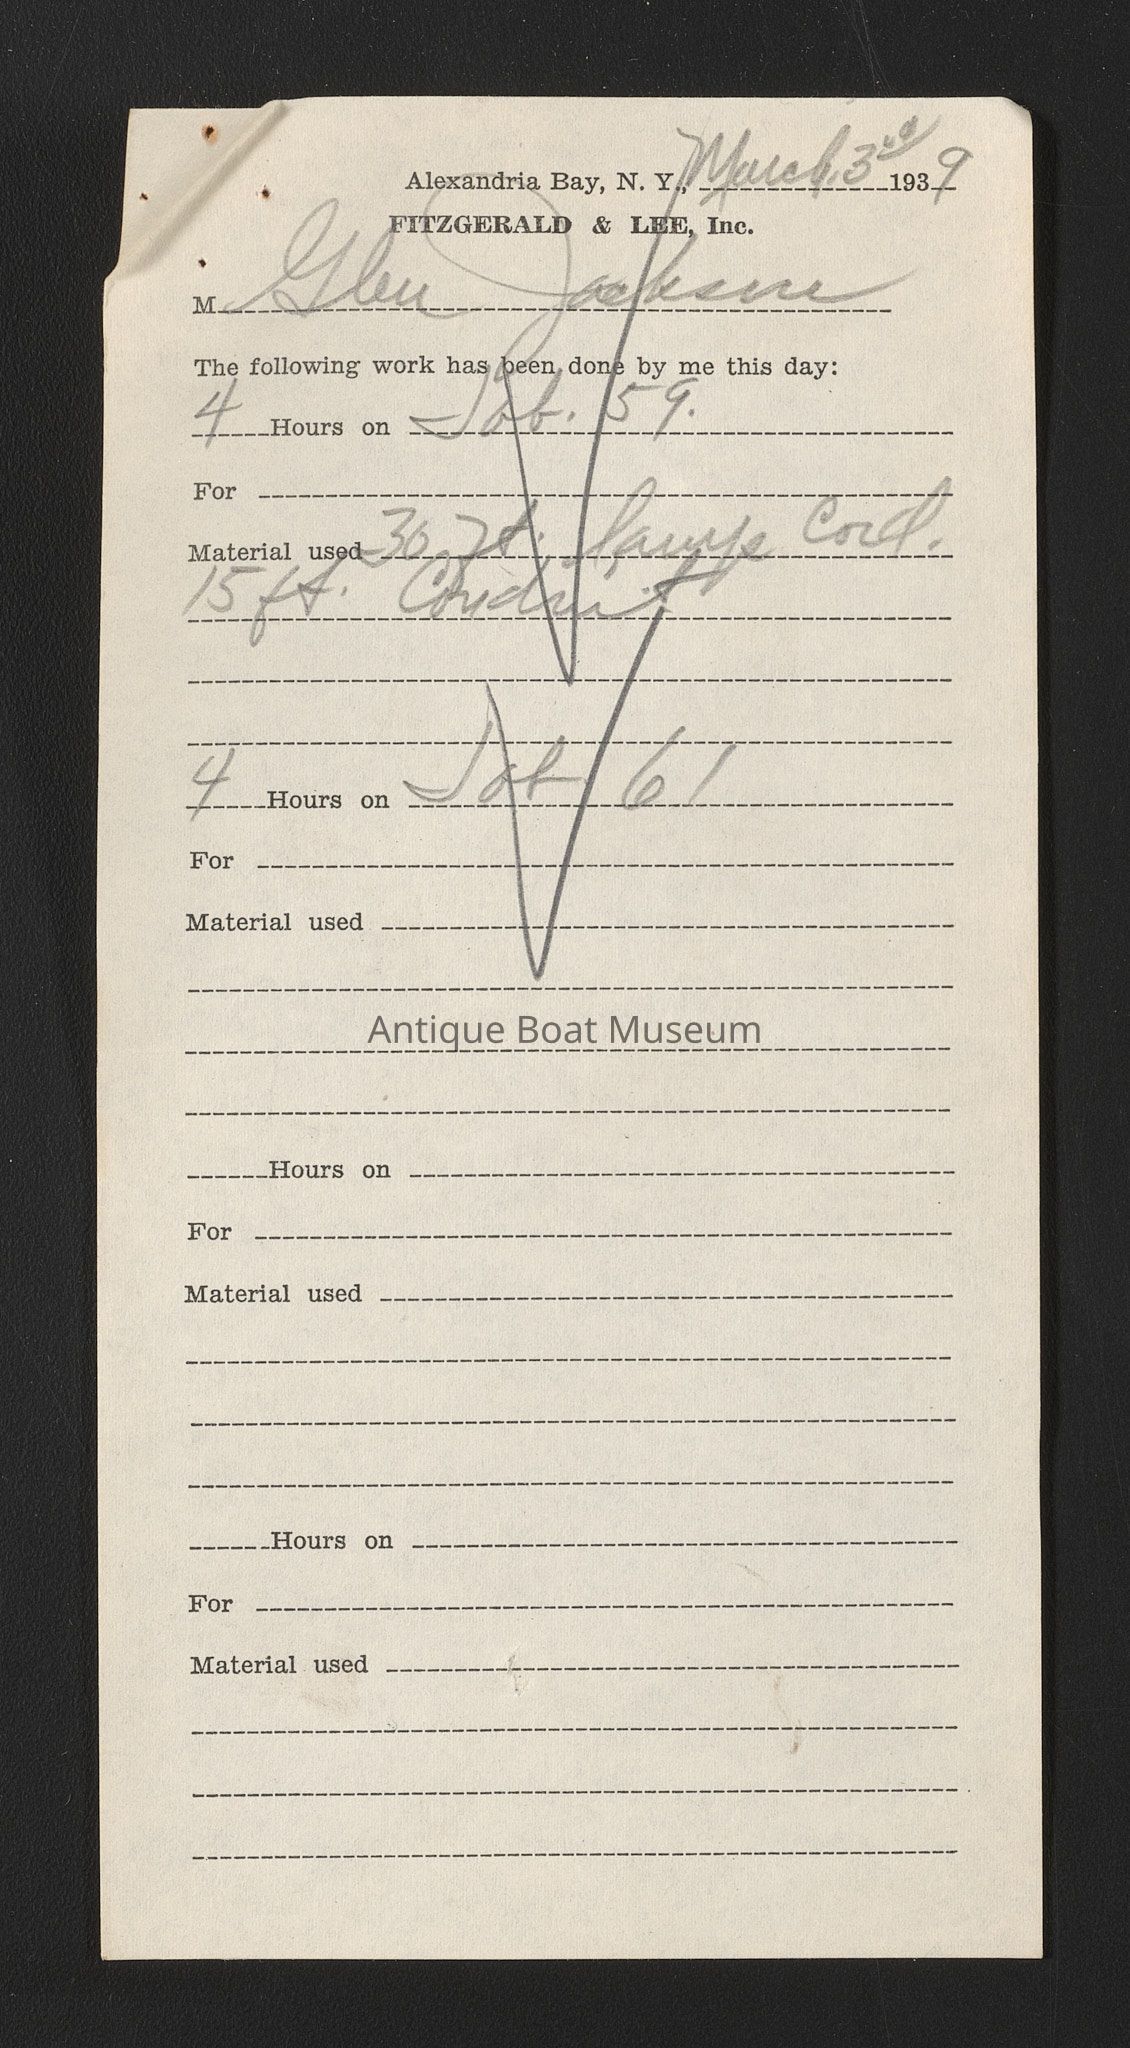 Alexandria Bay, N. Y., March. 3rd 1939
FITZGERALD & LEE, Inc.
M Glen Jackson
The following work has been done by me this day:
4 Hours on Job. 59.
For
Material used 30 ft. lamp Cord.
15 ft. Conduit
4 Hours on Job 61
For
Material used
Antique Boat Museum
Hours on
For
Material used
Hours on
For
Material used